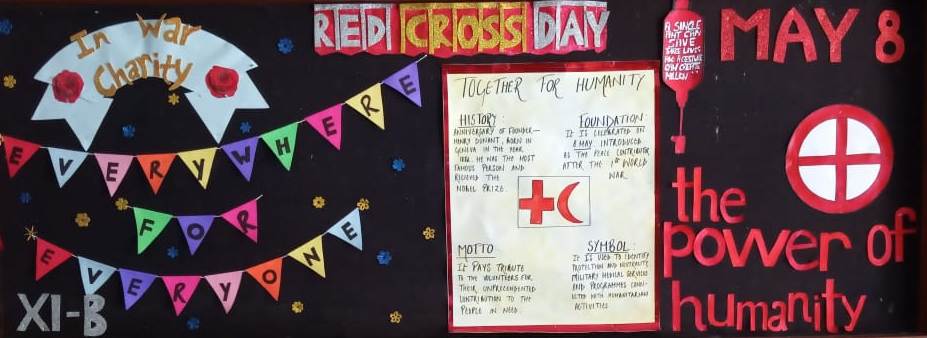 In War
Charity
EVERYWHERE
FOR
EVERYONE
XI-B
RED CROSS DAY
TOGETHER FOR HUMANITY
HISTORY:
ANNIVERSARY OF FOUNDER-
HENRY DUNANT, BORN IN
GENEVA IN THE YEAR
HE WAS THE MOST
FAMOUS PERSON AND
RECIEVED THE
NOBEL PRIZE.
FOUNDATION:
IT IS CELEBRATED ON
8 MAY INTRODUCED
AS THE PEACE CONTRIBUTER
AFTER THE 1st WORLD
WAR
MOTTO
IT PAYS TRIBUTE
TO THE VOLUNTEERS FOR
THEIR UNPRECENDENTED
CONTRIBUTION TO THE
PEOPLE IN NEED.
SYMBOL:
IT IS USED TO IDENTIFY
PROTECTION AND NEUTRALITY,
MILITARY MEDICAL SERVICES
AND PROGRAMMES CONN-
ECTED WITH HUMANITARIAN
ACTIVITIES
A SINGLE
PINT CAN
LIVES
MILLION
MAY 8
the
power of
humanity